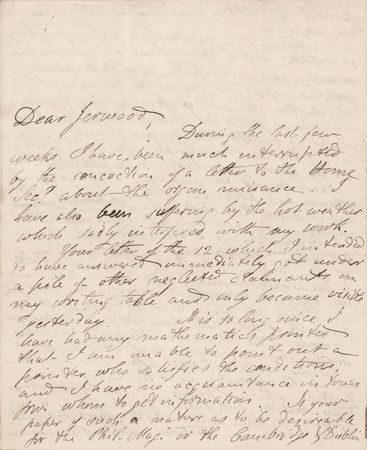 Dear Jerwood,
During the last few
weeks I have been much interrupted
by the concoction of a letter to the Home
Secy about the organ nuisance. I
have also been suffering by the hot weather
which sadly interfered with my work.
Your letter of the 12 which I intended
to have answered immediately got under
a pile of other neglected claimants on
my writing table and only became visible
yesterday. It is so long since I
have had any mathematics printed
that I am unable to point out a
printer who satisfies the conditions,
and I have no acquaintance in town
from whom to get information. Is your
paper of such a nature as to be desireable
for the Phil. Mag. or the Cambridge & Dublin